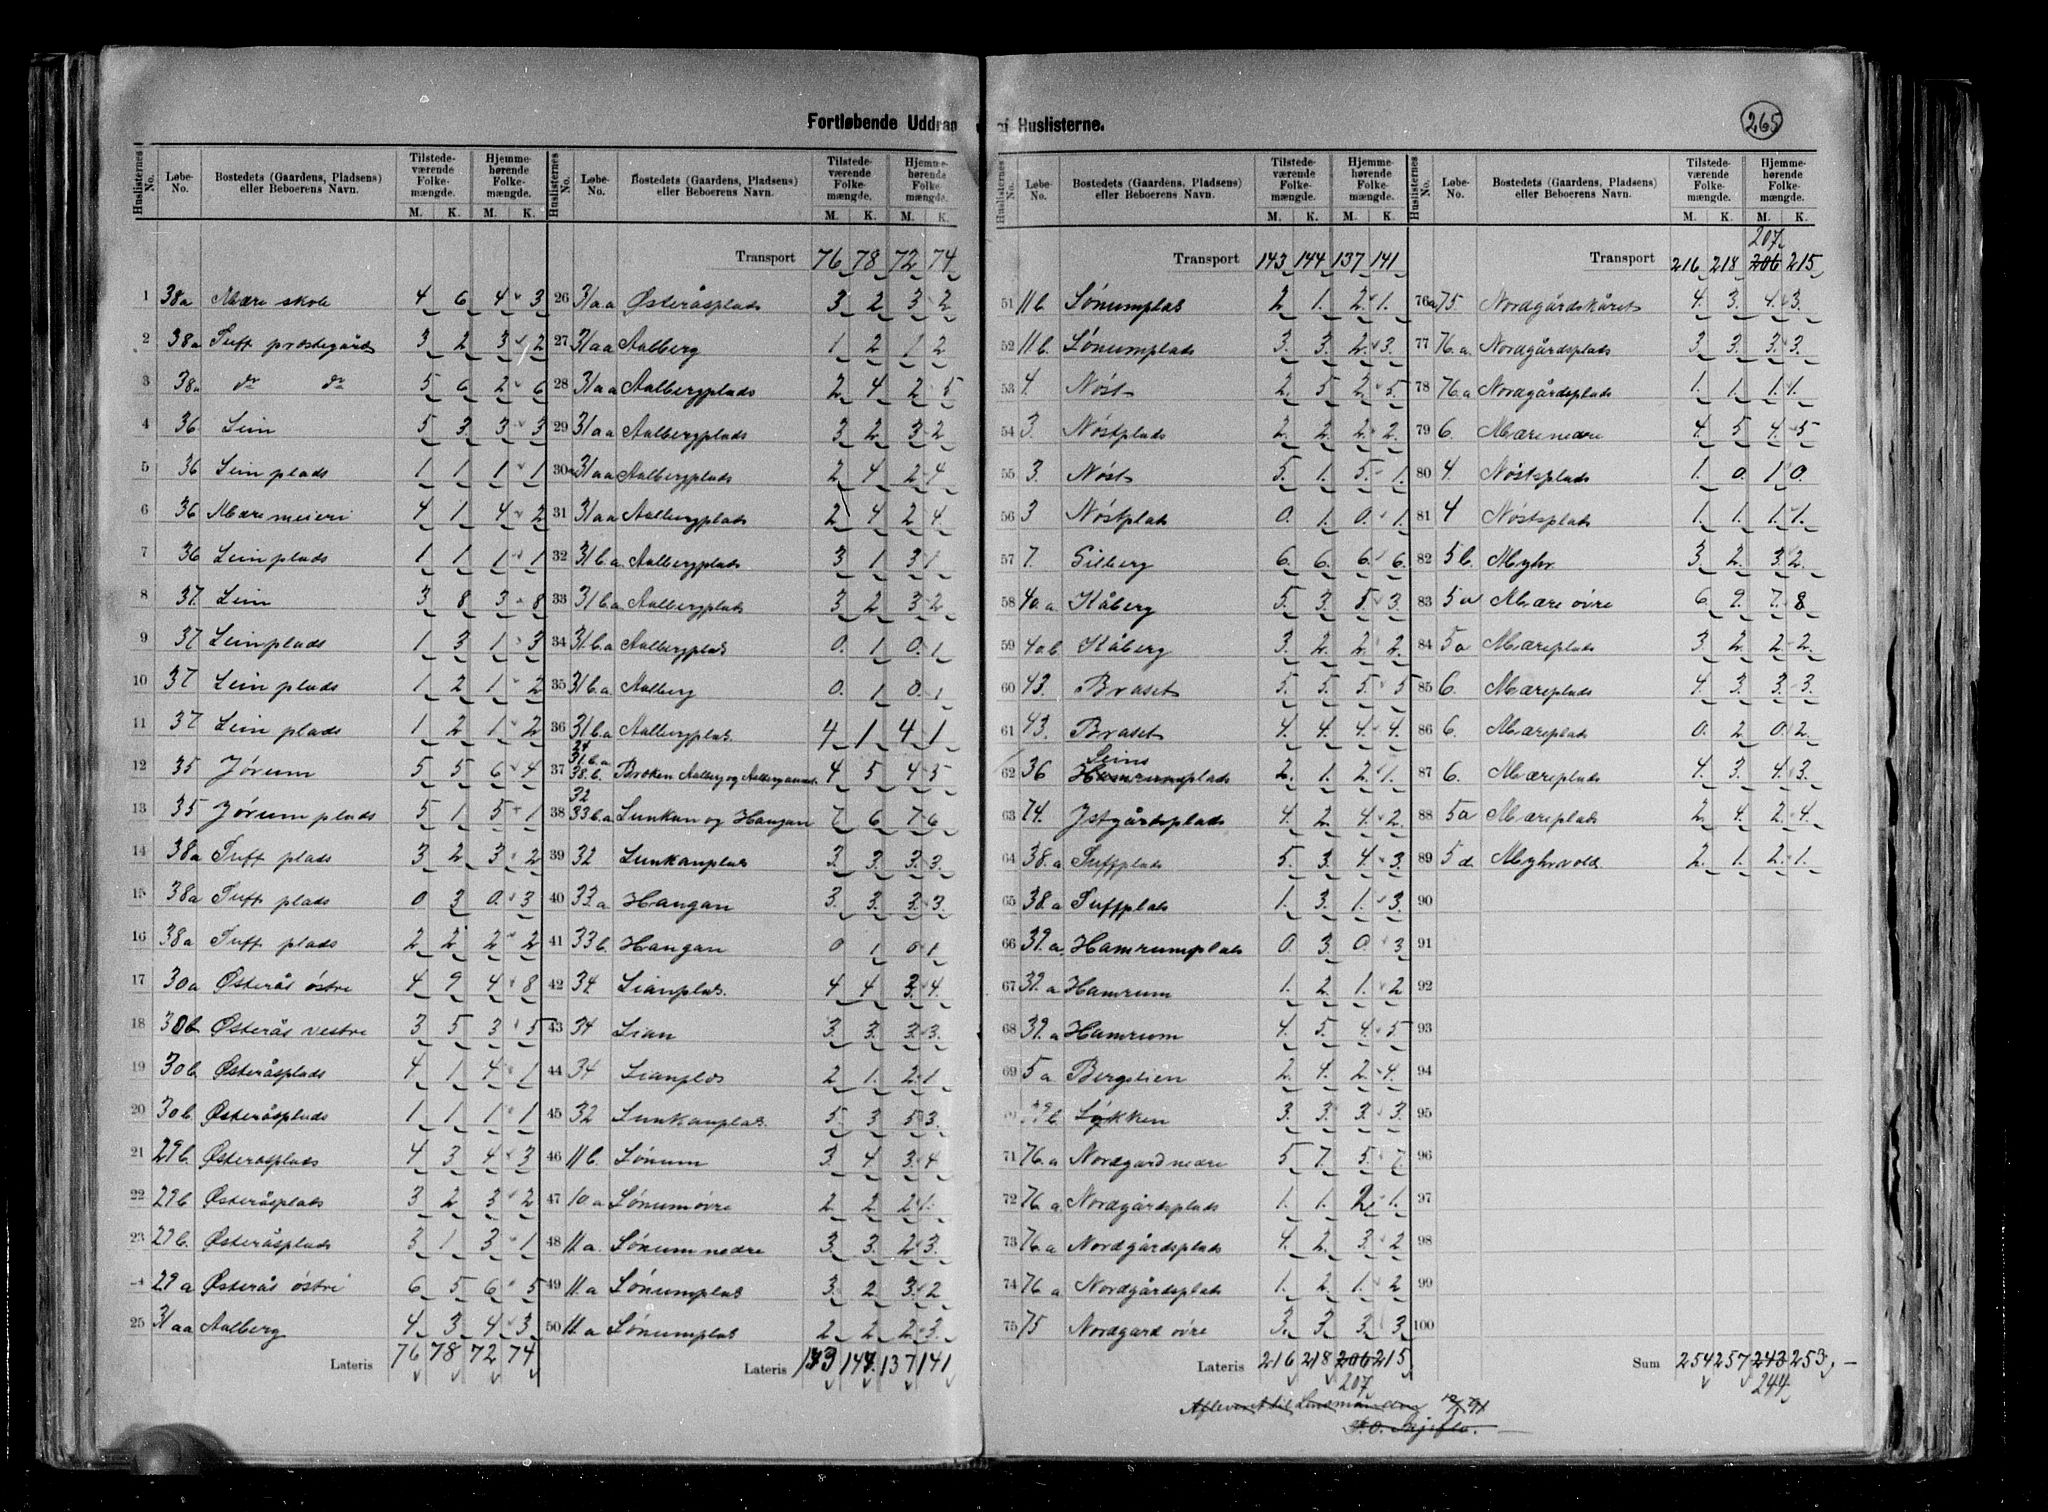 265
Fortløbende Uddrag af Huslisterne.
Huslisternes No. | Løbe-No. | Bostedets (Gaardens, Pladsens) eller Beboerens Navn. | Tilstedeværende Folkemængde. M. K. | Hjemmehørende Folkemængde. M. K.
Transport
1 38a Mære skole 4 6 4 3
2 38a Tuft præstegård 3 2 3 2
3 38a do do 5 6 2 6
4 36 Lein 5 3 3 3
5 36 Lein plads 1 1 1 1
6 36 Mære meieri 4 1 4 2
7 36 Leinplads 1 1 1 1
8 37. Lein 3 8 3 8
9 37 Leinplads 1 3 1 3
10 37 Lein plads 1 2 1 2
11 37 Lein plads 1 2 1 2
12 35 Jørum 5 5 6 4
13 35 Jørum plads 5 1 5 1
14 38a Tuft plads 3 2 3 2
15 38a Tuft plads 0 3 0. 3
16 38a Tuft plads 2 2 2 2
17 30a Østerås østre 4 9 4 8
18 30b Østerås vestre 3 5 3 5
19 30b. Østeråsplads 4 1 4 1
20 30b Østeråsplads 1 1 1 1
21 29b. Østeråsplads 4 3 4 3
22 29b Østeråsplads 3 2 3 2
23 29b. Østeråsplads 3 1 3 1
29a Østerås østri 6 5 6 5
25 31aa Aalberg 4 3 4 3
Lateris 76 78 72 74
Transport 76 78 72 74
26 31aa Østeråsplads 3 2 3 2
27 31aa Aalberg 1 2 1 2
28 31aa Aalbergplads 2 4 2 5
29 31aa Aalbergplads 3 2 3 2
30 31aa Aalbergplads 2 4 2 4
31 31aa Aalbergplads 2 4 2 4
32 31b.a. Aalbergplads 3 1 3 1
33 31b.a Aalbergplads 3 2 3 2
34 31b.a Aalbergplads 0. 1 0. 1
35 31b.a. Aalberg 0. 1 0. 1
36 31b.a Aalbergplas. 4 1 4 1
37 31.b.a 38.b. Broken Aalberg og 4 5 4 5
38 32 33b.a Lunkan og Haugan 7 6 7 6
39 32 Lunkanplas 3 3 3. 3.
40 33.a Haugan 3. 3. 3. 3.
41 33b. Haugan 0 1 0 1
42 34. Lianplas. 4 4 3. 4.
43 34 Lian 3. 3. 3. 3.
44 34 Lianplas 2 1. 2. 1.
45 32 Lunkanplas. 5. 3 5 3.
46 11b. Sønum 3. 4 3. 4
47 10a Sønumøvre 2 2 2 1.
48 11.a. Sønum nedre 3. 3. 2 3.
49 11.a Sønumplas 3. 2 3. 2
50 11.a Sønumplas 2 2 2 3.
Lateris 143 144 137 141
Transport 143 144 137 141
51 11b. Sønumplas 2 1. 2. 1.
52 11b. Sønumplads 3. 3. 2. 3.
53 4. Nøst 2. 5 2. 5.
54 3. Nøstplads 2. 2. 2. 2.
55 3. Nøst 5. 1. 5. 1.
56 3 Nøstplads 0. 1. 0. 1.
57 7. Gilberg 6. 6. 6. 6.
58 40.a. Kåberg 5. 3. 5. 3.
59 40b Kåberg 3. 2. 2. 2.
60 43. Braset 5. 5. 5. 5
61 43. Braset 4. 4. 4. 4.
62 36 Leins Hamrumsplads 2. 1. 2. 1.
63 74. Jstgårdsplads 4. 2 4. 2.
64 38.a Tuftplads 5. 3. 4. 3
65 38.a Tuftplads 1. 3. 1. 3.
66 39.a. Hamrumplads 0. 3 0. 3
67 39.a Hamrum 1. 2. 1. 2
68 39.a Hamrum 4. 5. 4. 5
69 5a Bergslien 2. 4. 2. 4.
Løkken 3. 3. 3. 3.
71 76.a Nordgard nedre 5 7. 5. 7.
72 76.a Nordgårdsplads 1. 1. 2 1.
73 76.a Nordgårdsplads 4. 2. 3. 2
74 76a Nordgårdsplads 1. 2 1. 2
75 75 Nordgard øvre 3. 3 3. 3
Lateris 216 218 206 215
207
Transport 216 218 206 215
207
76a 75. Nordgårdskåret 4. 3. 4. 3.
77 76.a. Nordgårdsplads 3. 3. 3. 3.
78 76.a Nordgårdsplads 1. 1. 1. 1.
79 6. Mære nedre 4. 5 4. 5
80 4. Nøstsplads 1. 0. 1 0.
81 4 Nøstsplads 1. 1. 1. 1.
82 5b. Myhr 3 2. 3. 2.
83 5a Mære øvre 6 9. 7. 8
84 5a Mæreplads 3. 2. 2. 2.
85 6. Mæreplads 4. 3. 3. 3.
86 6. Mæreplads 0. 2 0. 2.
87 6. Mæreplads 4. 3. 4. 3.
88 5a Mæreplads 2 4. 2. 4.
89 5d. Myhrvold 2. 1. 2. 1.
90
91
92
93
94
95
96
97
98
99
100
Sum 254 257 243 253
244
Afleveret til Lensmanden